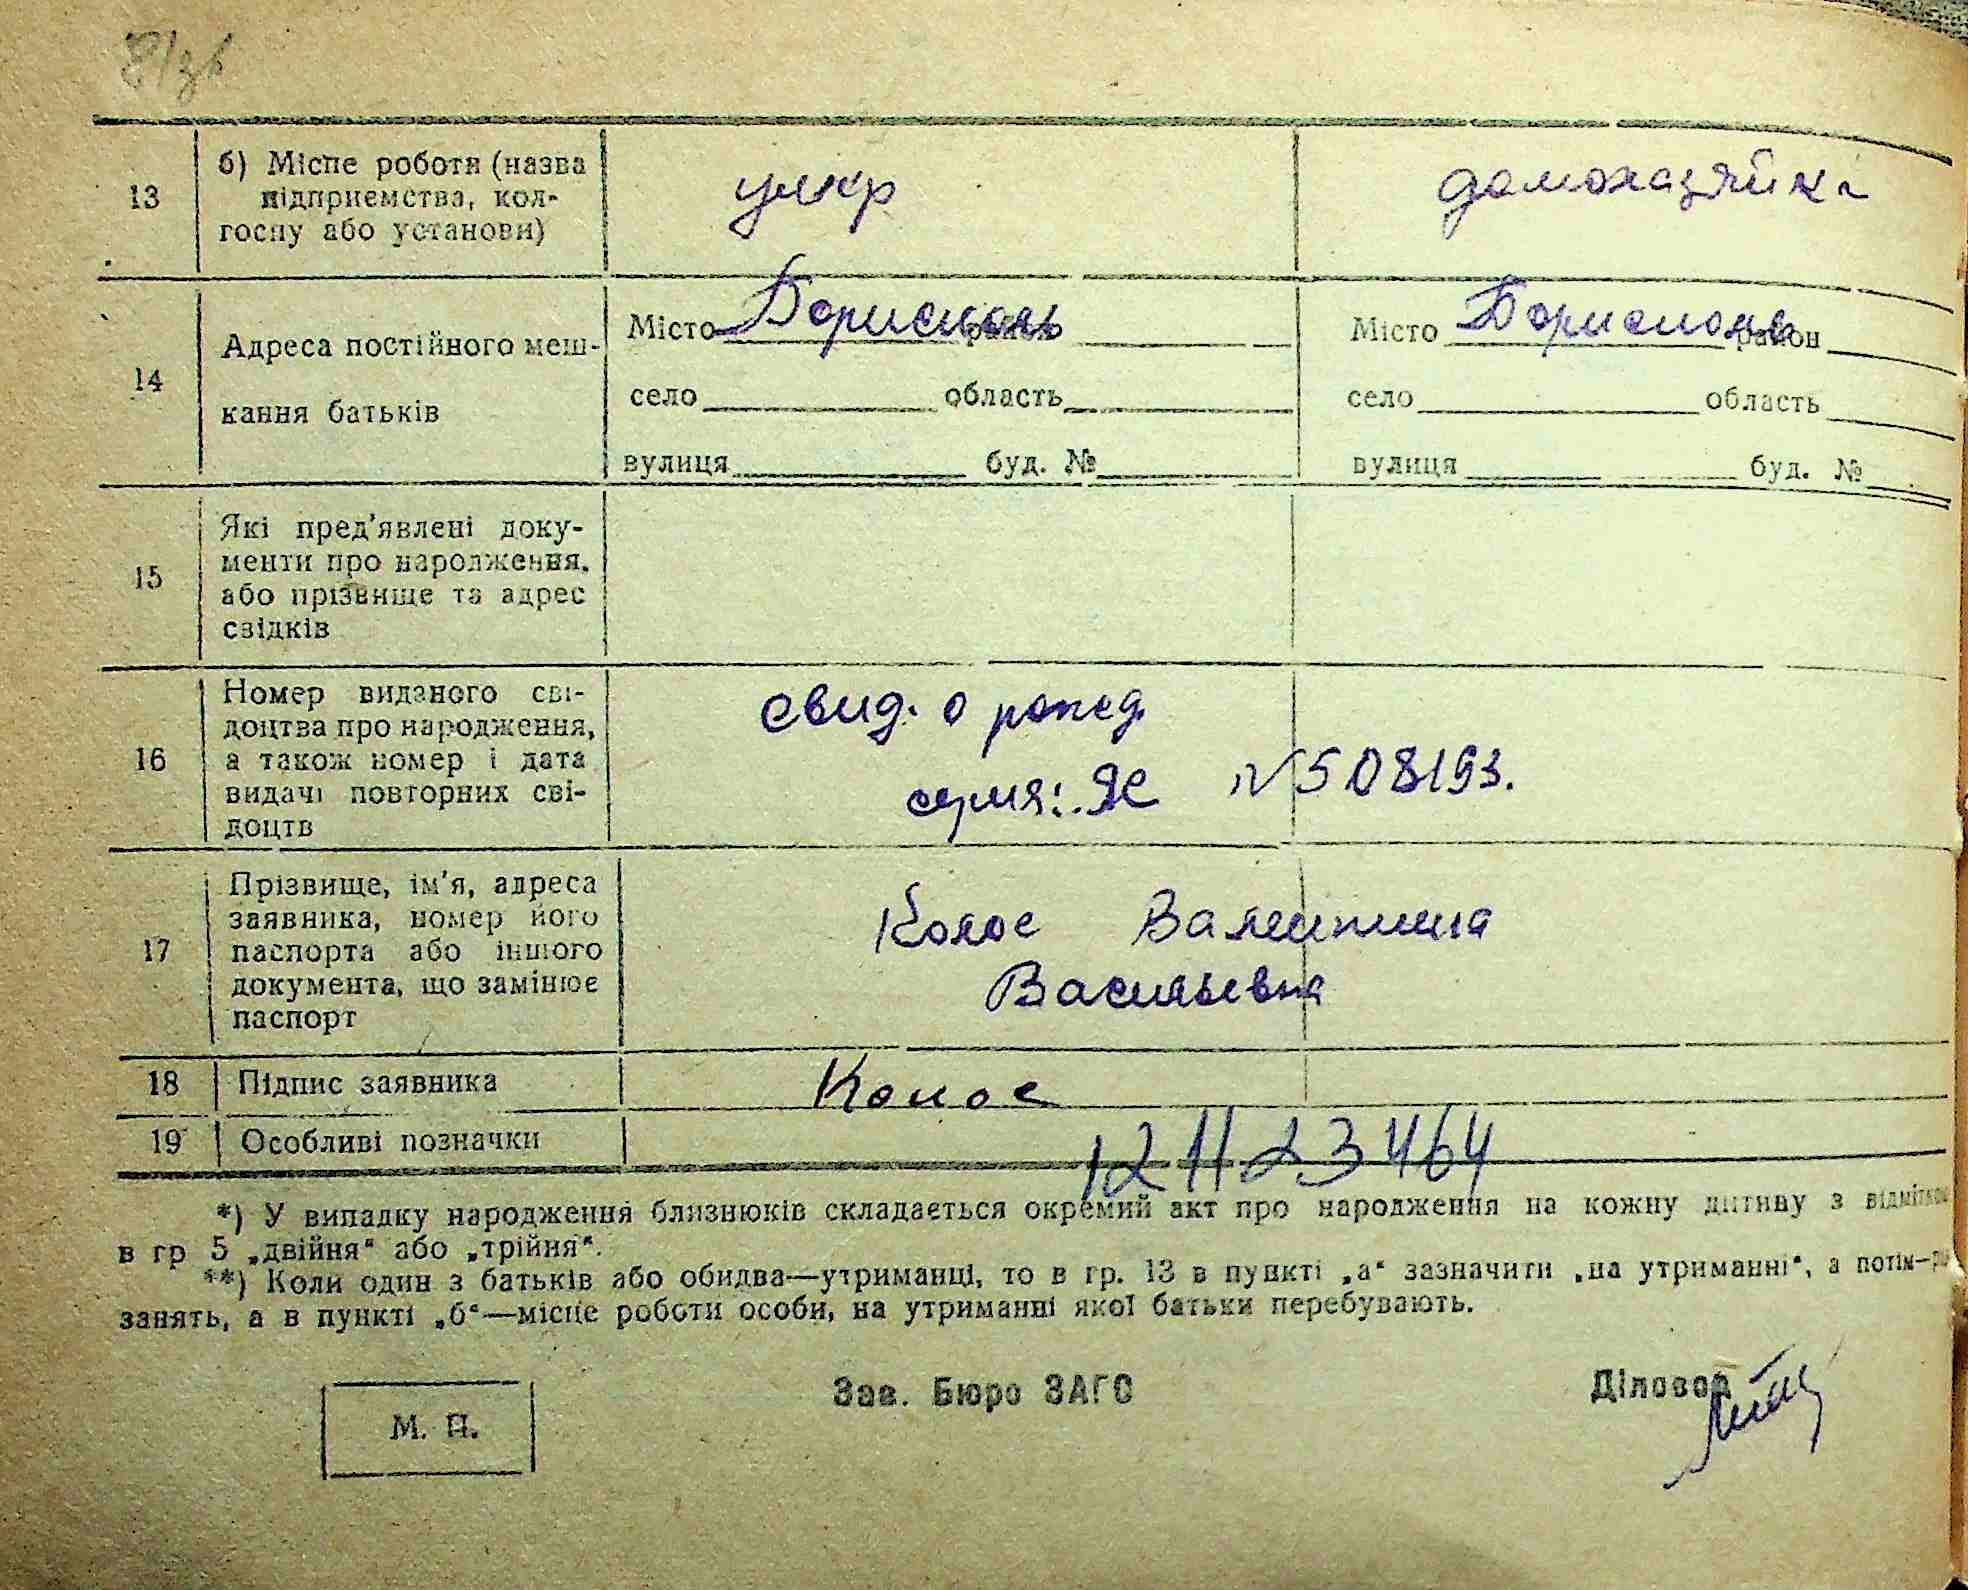 8/зв
13
б) Місце роботи (назва
підприємства, кол-
госпу або установи)
умер
домохазяйка
14
Адреса постійного меш-
кання батьків
Місто Борисполь район
село область
вулиця буд. №
Місто Борисполь район
село область
вулиця буд. №
15
Які пред'явлені доку-
менти про народження,
або прізвище та адрес
свідків
16
Номер виданого сві-
доцтва про народження,
а також номер і дата
видачі повторних сві-
доцтв
свид. о рожд.
серия: ЯС N 508193.
17
Прізвище, ім'я, адреса
заявника, номер його
паспорта або іншого
документа, що замінює
паспорт
Колос Валентина
Васильевна
18
Підпис заявника
Колос
19
Особливі позначки
12 11 23 464
*) У випадку народження близнюків складається окремий акт про народження на кожну дитину з відміткою
в гр 5 „двійня“ або „трійня“.
**) Коли один з батьків або обидва—утриманці, то в гр. 13 в пункті „а“ зазначити „на утриманні“, а потім—
занять, а в пункті „б“—місце роботи особи, на утриманні якої батьки перебувають.
М. П.
Зав. Бюро ЗАГС
Діловод